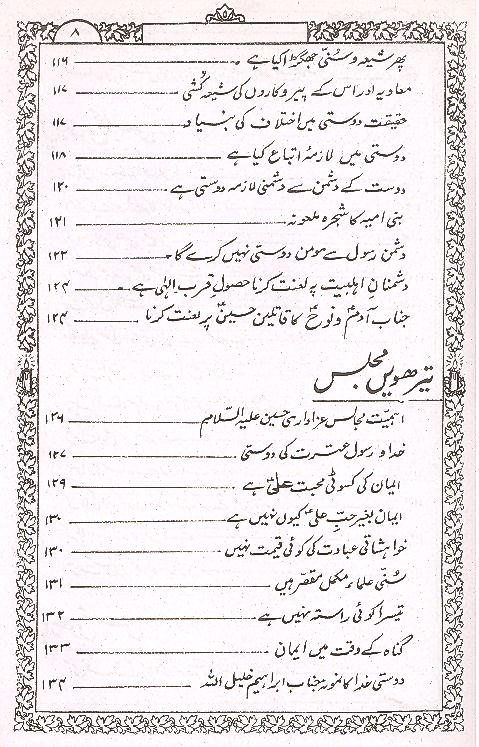 ۸
پھر شیعہ و سُنّی جھگڑا کیا ہے ۱۱۶
معاویہ اور اس کے پیروکاروں کی شیعہ کُشی ۱۱۷
حقیقت دوستی میں اختلاف کی بنیاد ۱۱۷
دوستی میں لازمۂ اتباع کیا ہے ۱۱۸
دوست کے دشمن سے دشمنی لازمہ دوستی ہے ۱۲۰
بنی امیہ کا شجرہ ملعونہ ۱۲۱
دشمن رسول سے مومن دوستی نہیں کرے گا ۱۲۲
دشمنانِ اہلبیت پہ لعنت کرنا حصولِ قرب الٰہی ہے ۱۲۴
جناب آدمؑ و نوحؑ کا قاتلین حسینؑ پر لعنت کرنا ۱۲۴
تیرھویں مجلس
اہمیّت مجالس عزاداری حسین علیہ السّلام ۱۲۶
خدا و رسول عترت کی دوستی ۱۲۷
ایمان کی کسوٹی محبت علیؑ ہے ۱۲۹
ایمان بغیر حبِّ علیؑ کیوں نہیں ہے ۱۳۰
خواہشاتی عبادت کی کوئی قیمت نہیں ۱۳۰
سُنّی علماء مکمل مقصّر ہیں ۱۳۱
تیسرا کوئی راستہ نہیں ہے ۱۳۲
گناہ کے وقت میں ایمان ۱۳۳
دوستی خدا کا نمونہ جناب ابراہیم خلیل اللہ ۱۳۴